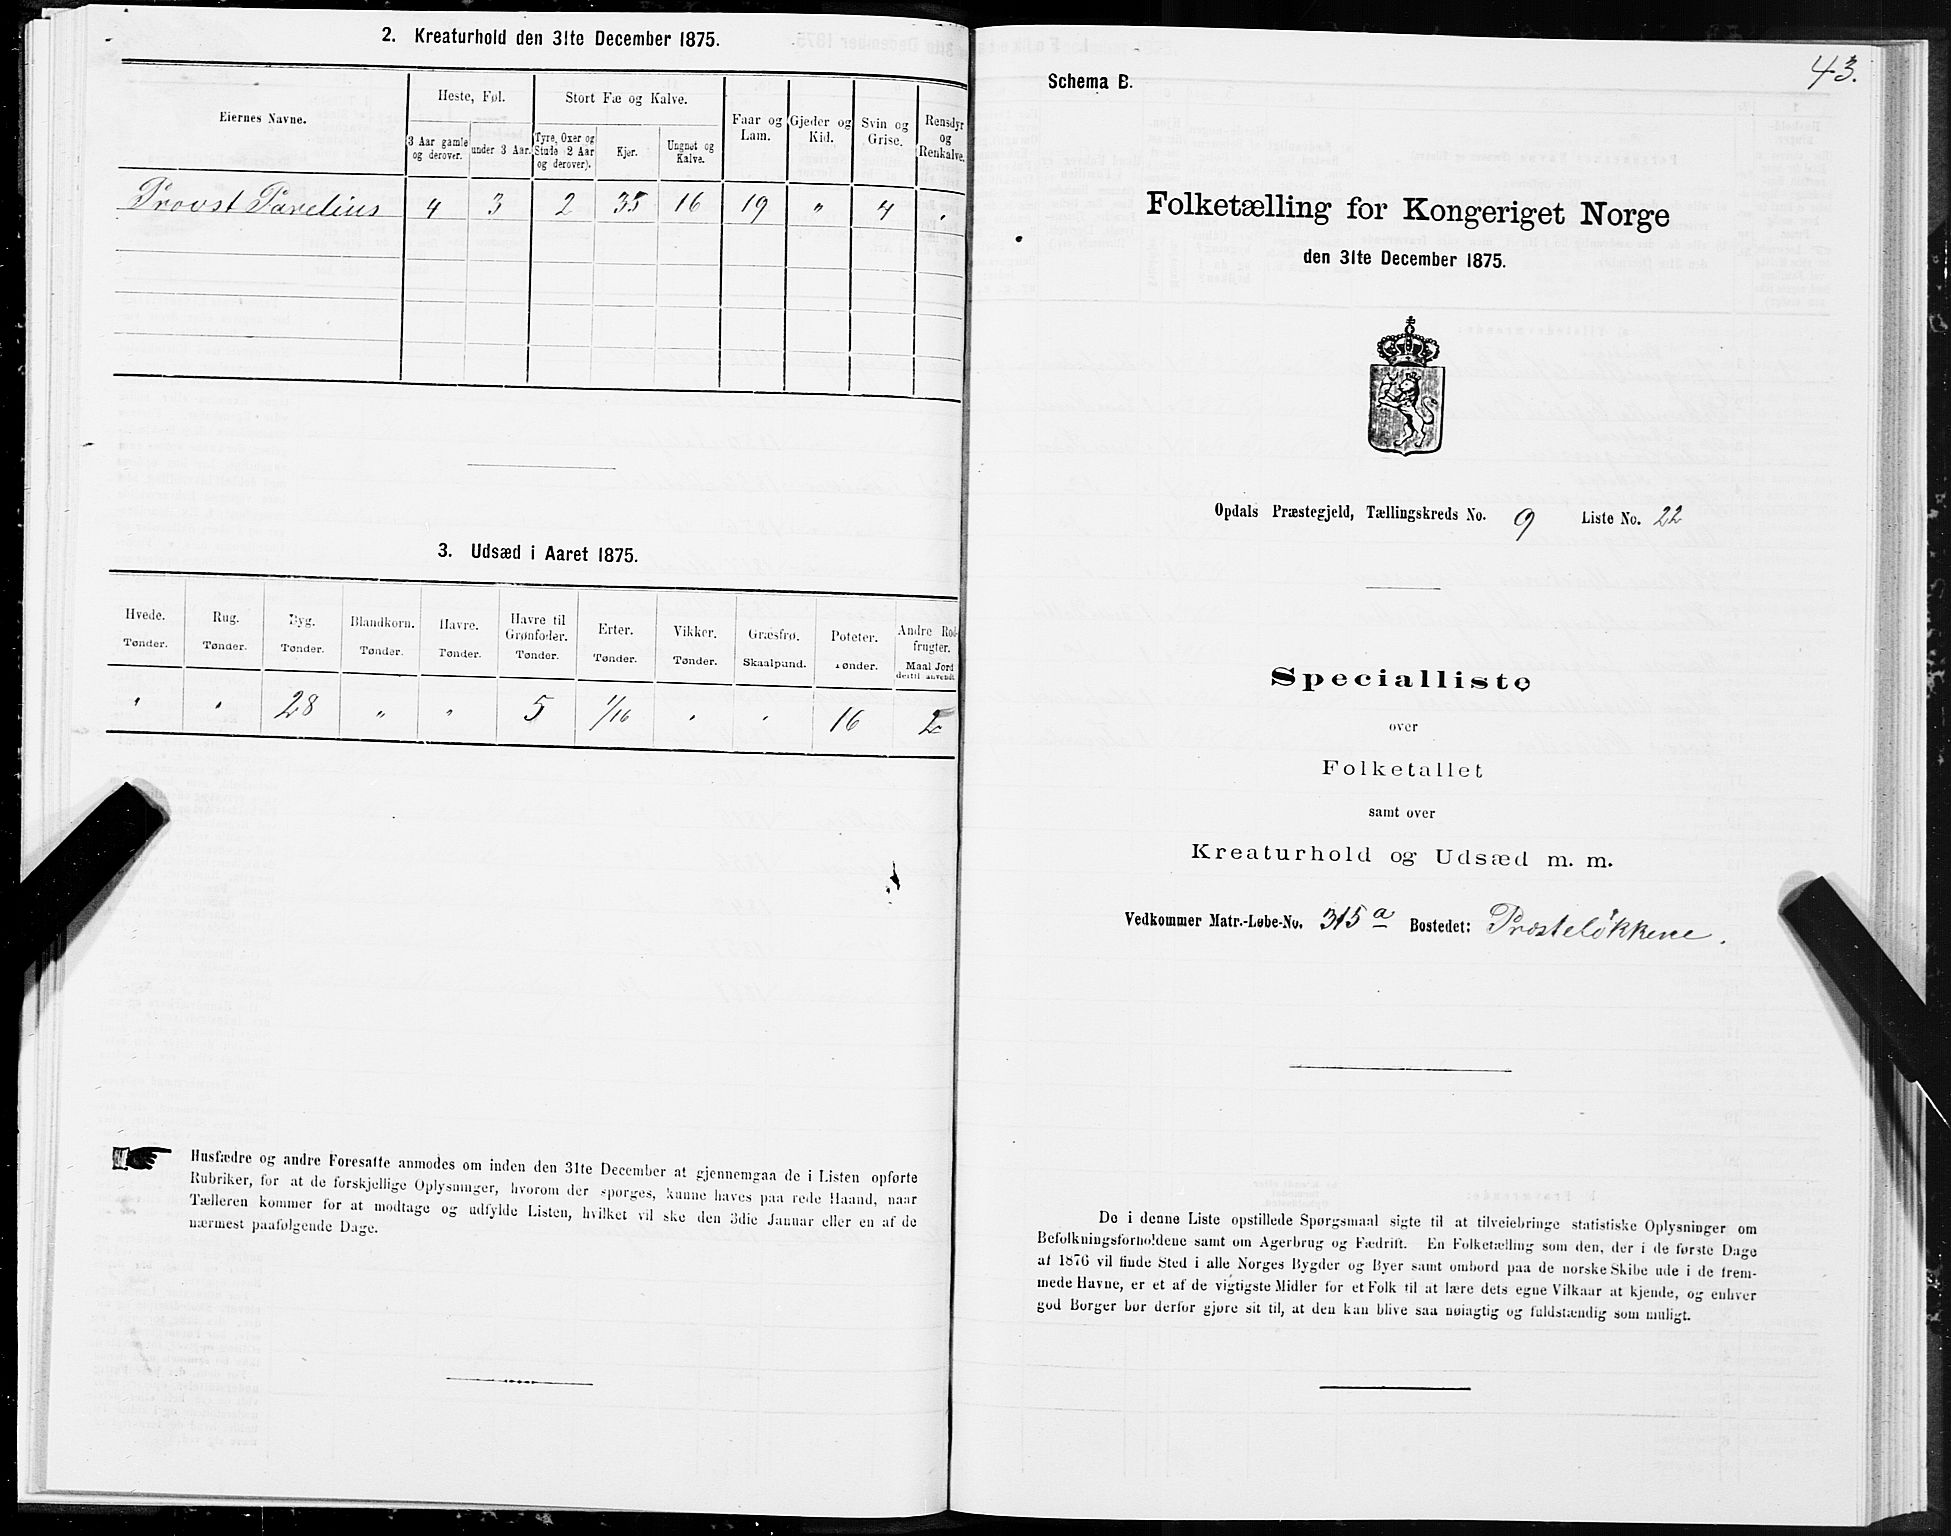 2. Kreaturhold den 31te December 1875.
Eiernes Navne.
Heste, Føl.
Stort Fæ og Kalve.
Faar og Lam.
Gjeder og Kid.
Svin og Grise.
Rensdyr og Renkalve.
3 Aar gamle og derover.
under 3 Aar.
Tyre, Oxer og Stude (2 Aar og derover).
Kjer.
Ungnøt og Kalve.
Provst Parelius 4 3 2 35 16 19 " 4 "
3. Udsæd i Aaret 1875.
Hvede. Rug. Byg. Blandkorn. Havre. Havre til Grønfoder. Erter. Vikker. Græsfrø. Poteter. Andre Rodfrugter.
Tønder. Tønder. Tønder. Tønder. Tønder. Tønder. Tønder. Tønder. Skaalpund. Tønder. Maal Jord dertil anvendt.
" " 28 " " 5 1/16 " " 16 2
Husfædre og andre Foresatte anmodes om inden den 31te December at gjennemgaa de i Listen opførte
Rubriker, for at de forskjellige Oplysninger, hvorom der spørges, kunne haves paa rede Haand, naar
Tælleren kommer for at modtage og udfylde Listen, hvilket vil ske den 3die Januar eller en af de
nærmest paafølgende Dage.
43.
Schema B.
Folketælling for Kongeriget Norge
den 31te December 1875.
Opdals Præstegjeld, Tællingskreds No. 9 Liste No. 22
Specialliste
over
Folketallet
samt over
Kreaturhold og Udsæd m. m.
Vedkommer Matr.-Løbe-No. 315 a Bostedet: Præsteløkkene.
De i denne Liste opstillede Spørgsmaal sigte til at tilveiebringe statistiske Oplysninger om
Befolkningsforholdene samt om Agerbrug og Fædrift. En Folketælling som den, der i de første Dage
af 1876 vil finde Sted i alle Norges Bygder og Byer samt ombord paa de norske Skibe ude i de frem-
mede Havne, er et af de vigtigste Midler for et Folk til at lære dets egne Vilkaar at kjende, og enhver
god Borger bør derfor gjøre sit til, at den kan blive saa nøiagtig og fuldstændig som muligt.